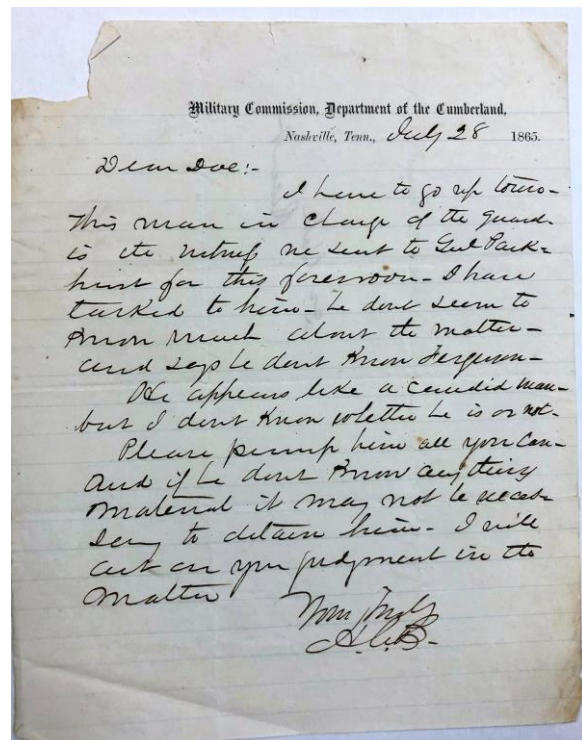 Military Commission, Department of the Cumberland,
Nashville, Tenn., July 28 1865.
Dear Doc:-
I have to go up town-
This man in charge of the guard-
is the witness we sent to Genl Park=
hurst for this forenoon- I have
talked to him- he dont seem to
know much about the matter-
and says he dont know Ferguson-
He appears like a candid man-
but I dont know whether he is or not-
Please pump him all you can-
and if he dont know anything
material it may not be neces=
sary to detain him- I will
act on your judgment in the
matter
Yours Truly
H.C.B.-